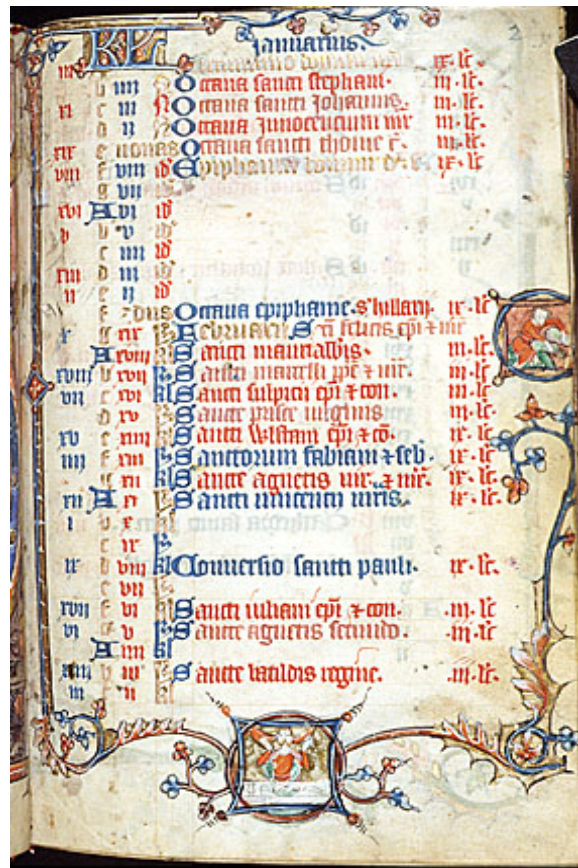 KL Januarius.
iii ix. lc
b iiii N Octaua sancti stephani. iii. lc
xi c iii N Octaua sancti Johannis. iii. lc
d ii N Octaua Innocencium mr iii. lc
xix e nonas Octaua sancti thome iii. lc
viii f viii id Epiphanie domini ix. lc
g vii id
xvi A vi id
v b v id
c iiii id
xiii d iii id
ii e ii id
f idus Octaua epiphanie. s hillarii ix. lc
x g xix kl Februarii S felicis iii. lc
A xviii kl Sancti mauri abbis. iii. lc
xviii b xvii kl Sancti marcelli pape & mr. iii. lc
vii c xvi kl Sancti sulpicii epi & con. iii. lc
d xv kl Sancte prisce uirginis iii. lc
xv e xiiii kl Sancti Wlstani epi & co. ix. lc
iiii f xiii kl Sanctorum fabiani & seb. ix. lc
g xii kl Sancte agnetis uir. & mr. ix. lc
xii A xi kl Sancti uincentii mris. ix. lc
i b x kl
c ix kl
ix d viii kl Conuersio sancti pauli. ix. lc
e vii kl
xvii f vi kl Sancti iuliani epi & con. iii. lc
vi g v kl Sancte agnetis secundo. iii. lc
A iiii kl
xiiii b iii kl Sancte batildis regine. iii. lc
iii c ii kl